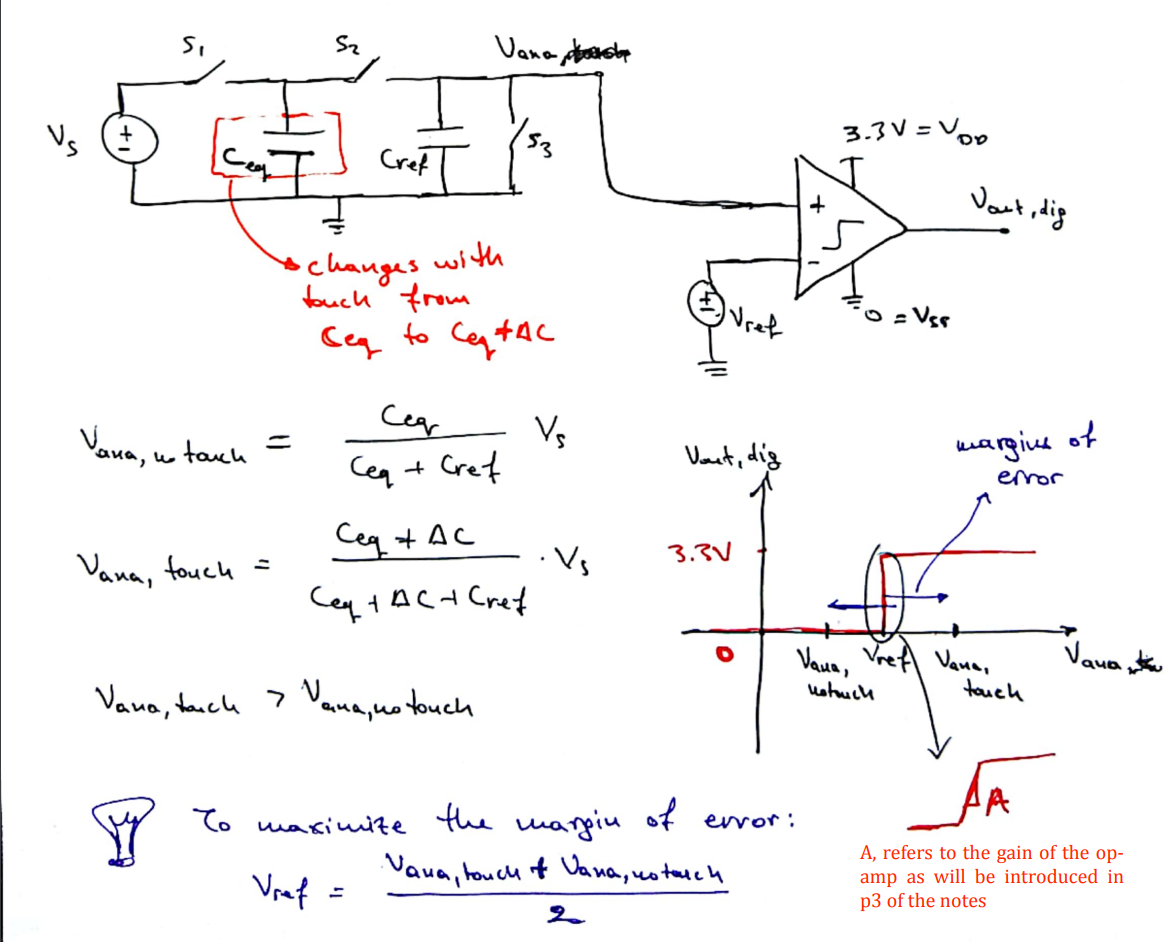 S1
S2
Vana,
Vs
+
-
Ceq
Cref
S3
3.3V = VDD
+
-
Vout, dig
+
-
Vref
0 = VSS
changes with
touch from
Ceq to Ceq + ΔC
Vana, no touch = Ceq / (Ceq + Cref) Vs
Vana, touch = (Ceq + ΔC) / (Ceq + ΔC + Cref) · Vs
Vana, touch > Vana, no touch
Vout, dig
margins of
error
3.3V
0
Vana,
notouch
Vref
Vana,
touch
Vana,
A
To maximize the margin of error:
Vref = (Vana, touch + Vana, no touch) / 2
A, refers to the gain of the op-
amp as will be introduced in
p3 of the notes